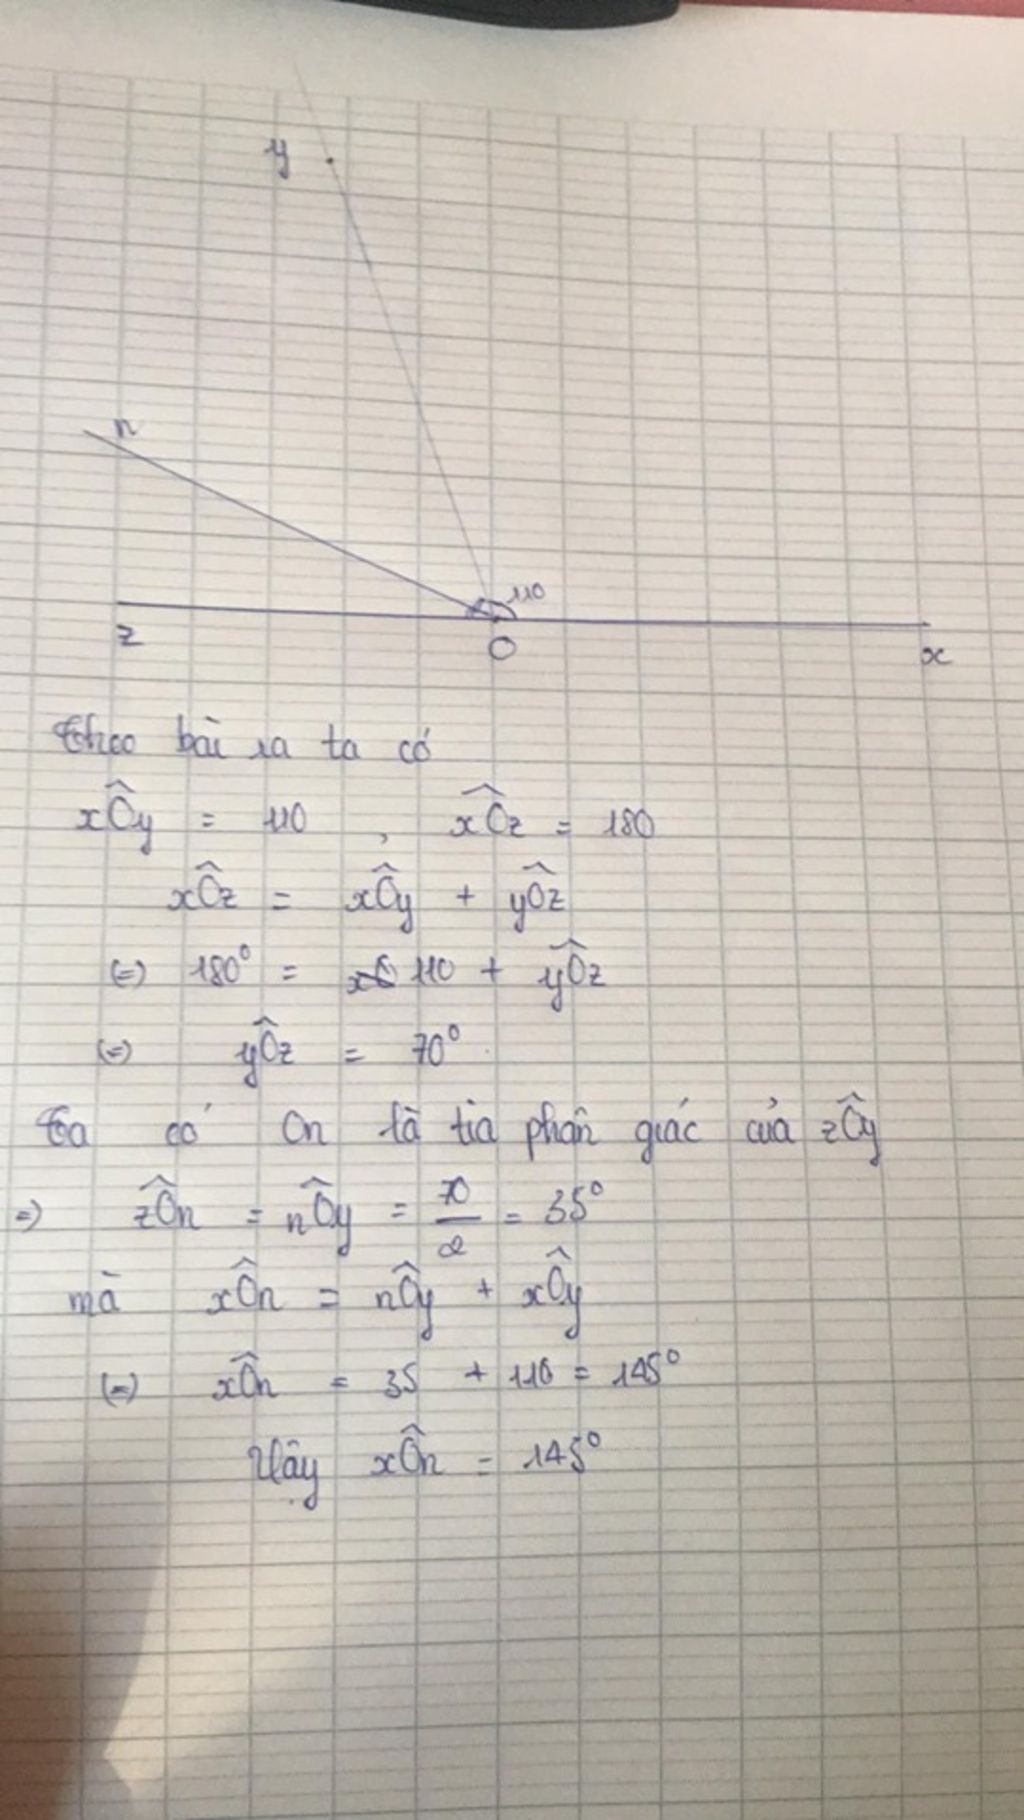 y
n
110
z
O
x
Theo bài ra ta có
xÔy = 110 , xÔz = 180
xÔz = xÔy + yÔz
(=) 180° = 110 + yÔz
(=) yÔz = 70°
Ta có On là tia phân giác của zÔy
=) zÔn = nÔy = 70/2 = 35°
mà xÔn = nÔy + xÔy
(=) xÔn = 35 + 110 = 145°
Vây xÔn = 145°